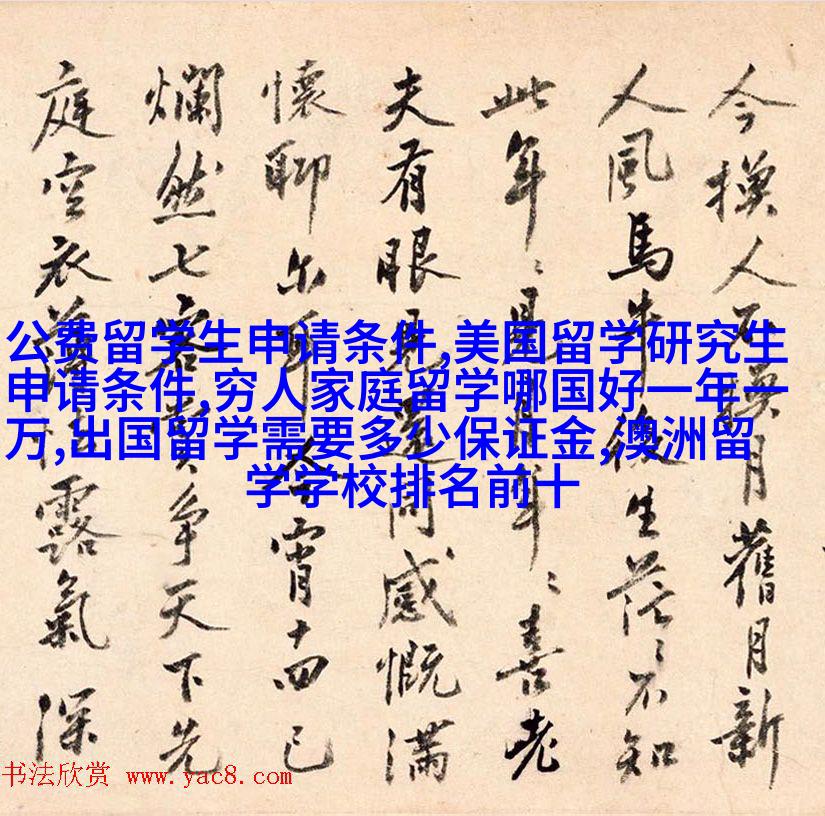 公费留学生申请条件,美国留学研究生
申请条件,穷人家庭留学哪国好一年一
万,出国留学需要多少保证金,澳洲留
学学校排名前十
今換人不換月舊月新
人風馬牛後生茫〻不知
此年〻月年〻喜老
夫有眼見還同感慨滿
懷聊尔耳今宵十四已
爛然七客賞爭天下先
庭空衣薄怯露氣深
书法欣赏 www.yac8.com